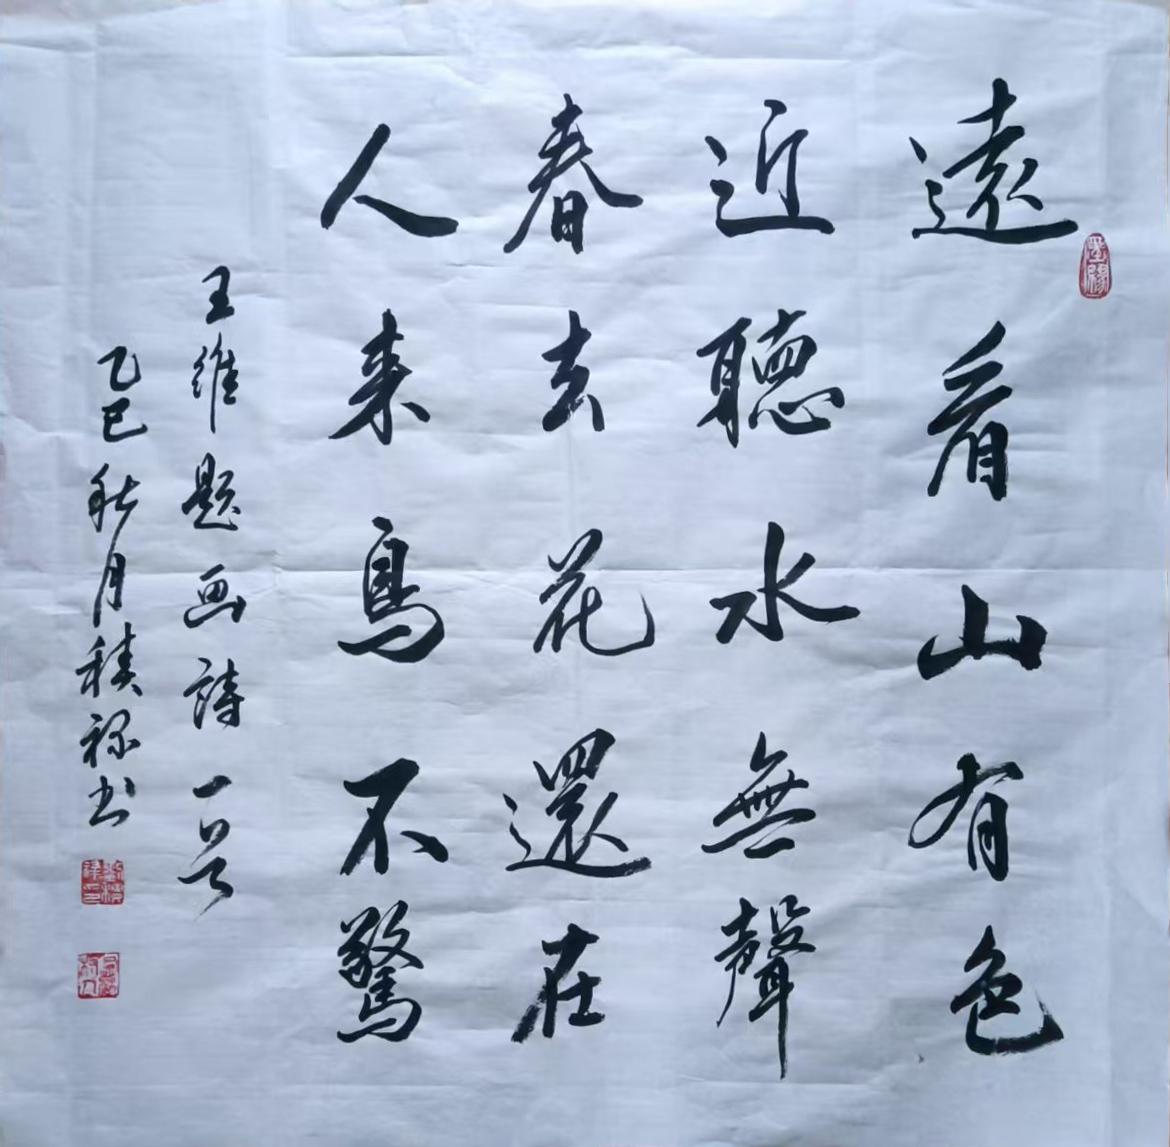 遠看山有色
近聽水無聲
春去花還在
人来鳥不驚
王維题画詩一首
乙巳秋月積禄书